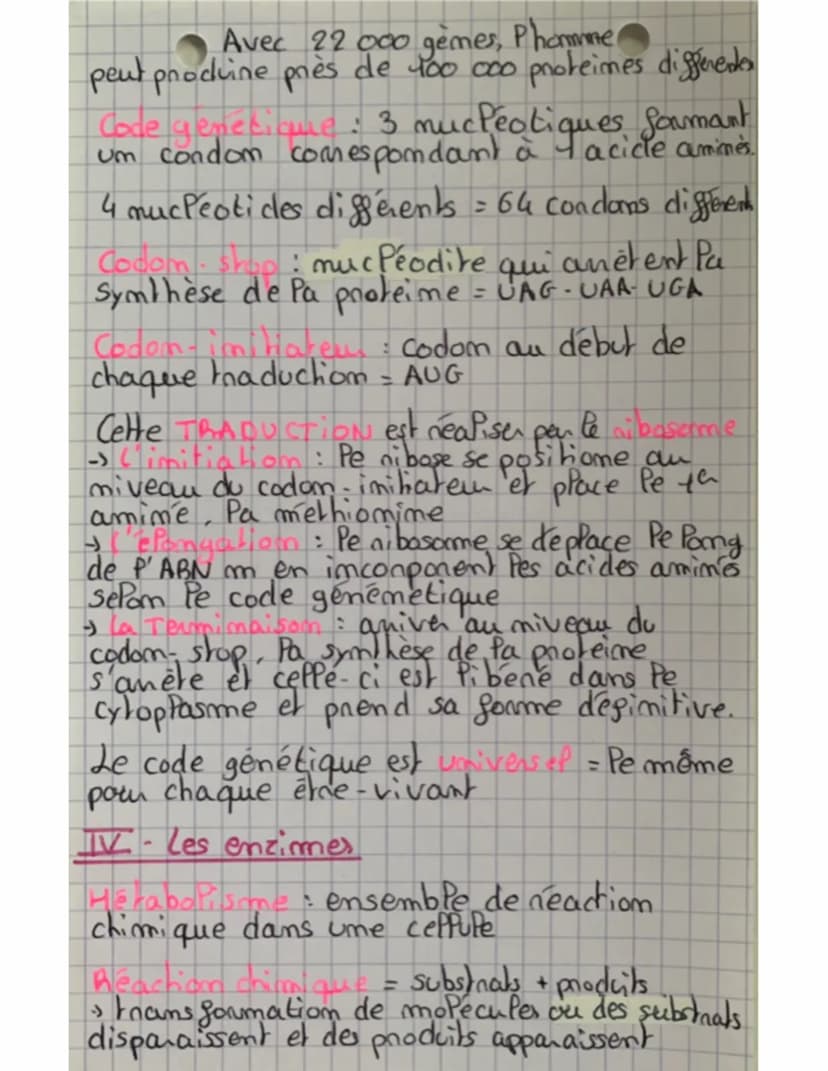 Avec 22 000 gènes, l'homme
peut produire près de 100 000 proteines différentes
Code génétique : 3 nucléotiques formant
um condon correspondant à 1 acide aminés.
4 nucléotides différents = 64 condons différent
Codon-stop : nucléodite qui arrêtent la
Synthèse de la proteine = UAG-UAA-UGA
Codon-initiateur : codon au début de
chaque traduction = AUG
Cette TRADUCTION est réaliser par le ribosome
-> L'initiation : le ribose se positione au
niveau du codon-initiateur et place le 1er
aminé, la méthionine
-> L'élongation : le ribosome se déplace le long
de l'ARN m en inconporent les acides aminés
selon le code génémétique
-> La Terminaison : arriver au niveau du
codon-stop, la synthèse de la proteine
s'arrête et celle-ci est libéré dans le
cytoplasme et prend sa forme définitive.
Le code génétique est universel = le même
pour chaque être-vivant
IV - Les enzimes
Métabolisme : ensemble de réaction
chimique dans une cellule
Réaction chimique = substrats + produits
-> transformation de molécules ou des substrats
disparaissent et des produits apparaissent